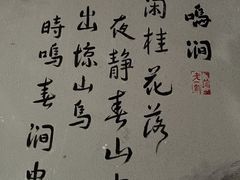 鳴澗
闲桂花落
夜静春山
出惊山鳥
時鳴春澗中